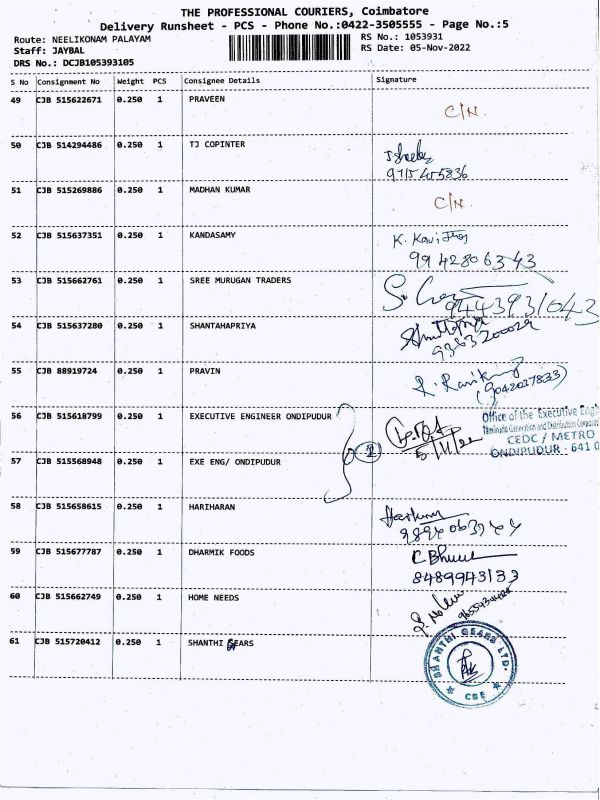 THE PROFESSIONAL COURIERS, Coimbatore
Delivery Runsheet - PCS - Phone No.:0422-3505555 - Page No.:5
Route: NEELIKONAM PALAYAM RS No.: 1053931
Staff: JAYBAL RS Date: 05-Nov-2022
DRS No.: DCJB105393105
S No Consignment No Weight PCS Consignee Details Signature
49 CJB 515622671 0.250 1 PRAVEEN C/N.
50 CJB 514294486 0.250 1 TJ COPINTER
9715455836
51 CJB 515269886 0.250 1 MADHAN KUMAR C/N.
52 CJB 515637351 0.250 1 KANDASAMY K.
9942806343
53 CJB 515662761 0.250 1 SREE MURUGAN TRADERS
9443931043
54 CJB 515637280 0.250 1 SHANTAHAPRIYA
55 CJB 88919724 0.250 1 PRAVIN
(9042027833)
56 CJB 515618799 0.250 1 EXECUTIVE ENGINEER ONDIPUDUR
2
5/11/22
Office of the Executive Engi
Tamilnadu Generation and Distribution Corporation
CEDC / METRO
ONDIPUDUR - 641 0
57 CJB 515568948 0.250 1 EXE ENG/ ONDIPUDUR
58 CJB 515658615 0.250 1 HARIHARAN
59 CJB 515677787 0.250 1 DHARMIK FOODS
8489943133
60 CJB 515662749 0.250 1 HOME NEEDS
61 CJB 515720412 0.250 1 SHANTHI GEARS
SHANTHI GEARS LTD.
CBE